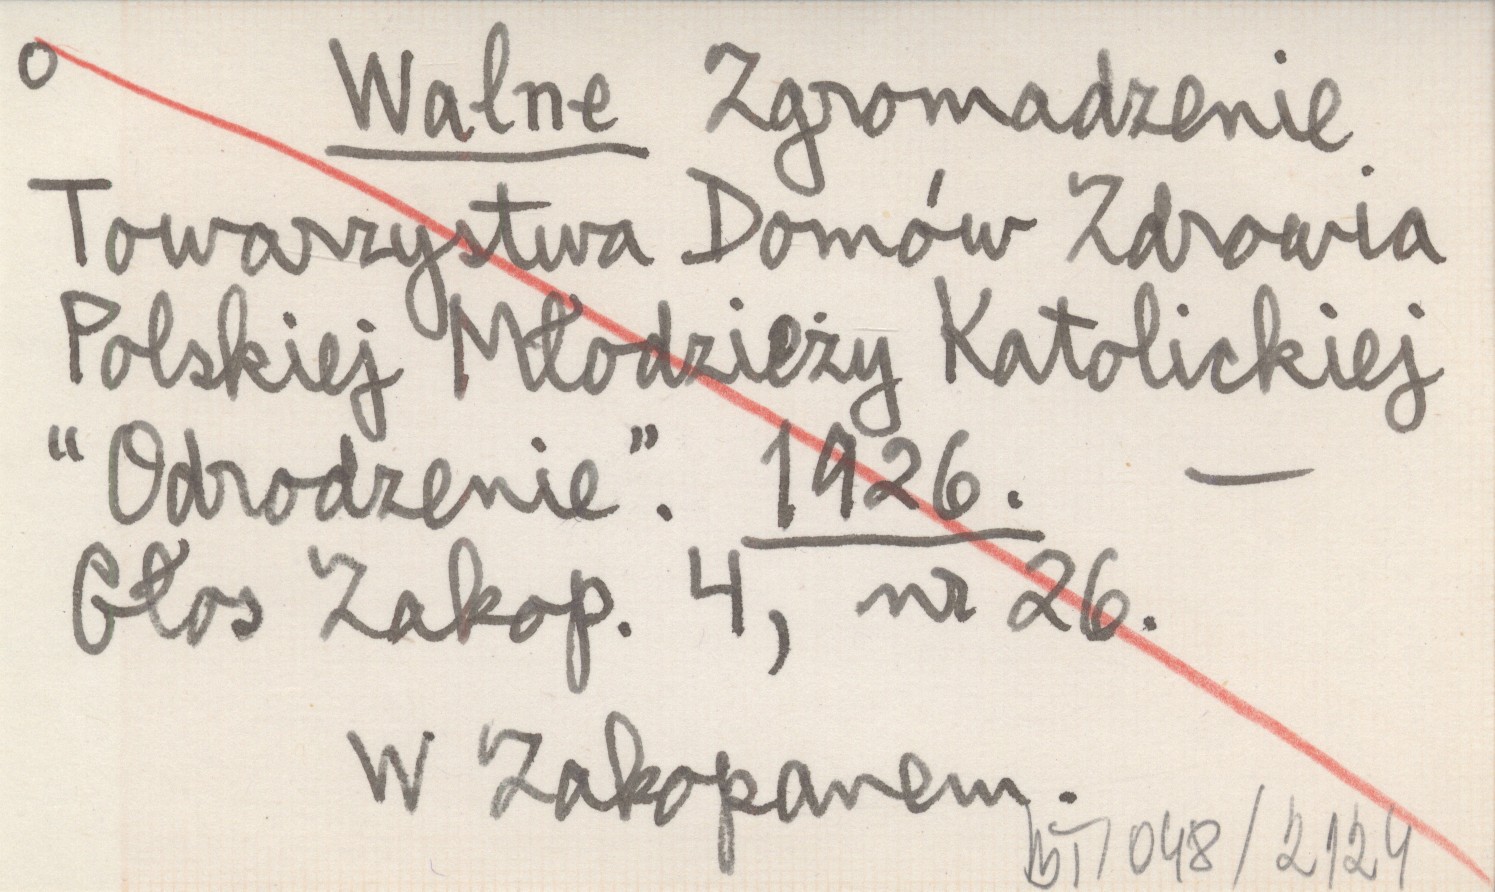 o Walne Zgromadzenie
Towarzystwa Domów Zdrowia
Polskiej Młodzieży Katolickiej
“Odrodzenie”. 1926. —
Głos Zakop. 4, nr 26.
W Zakopanem.
BT/048/2124